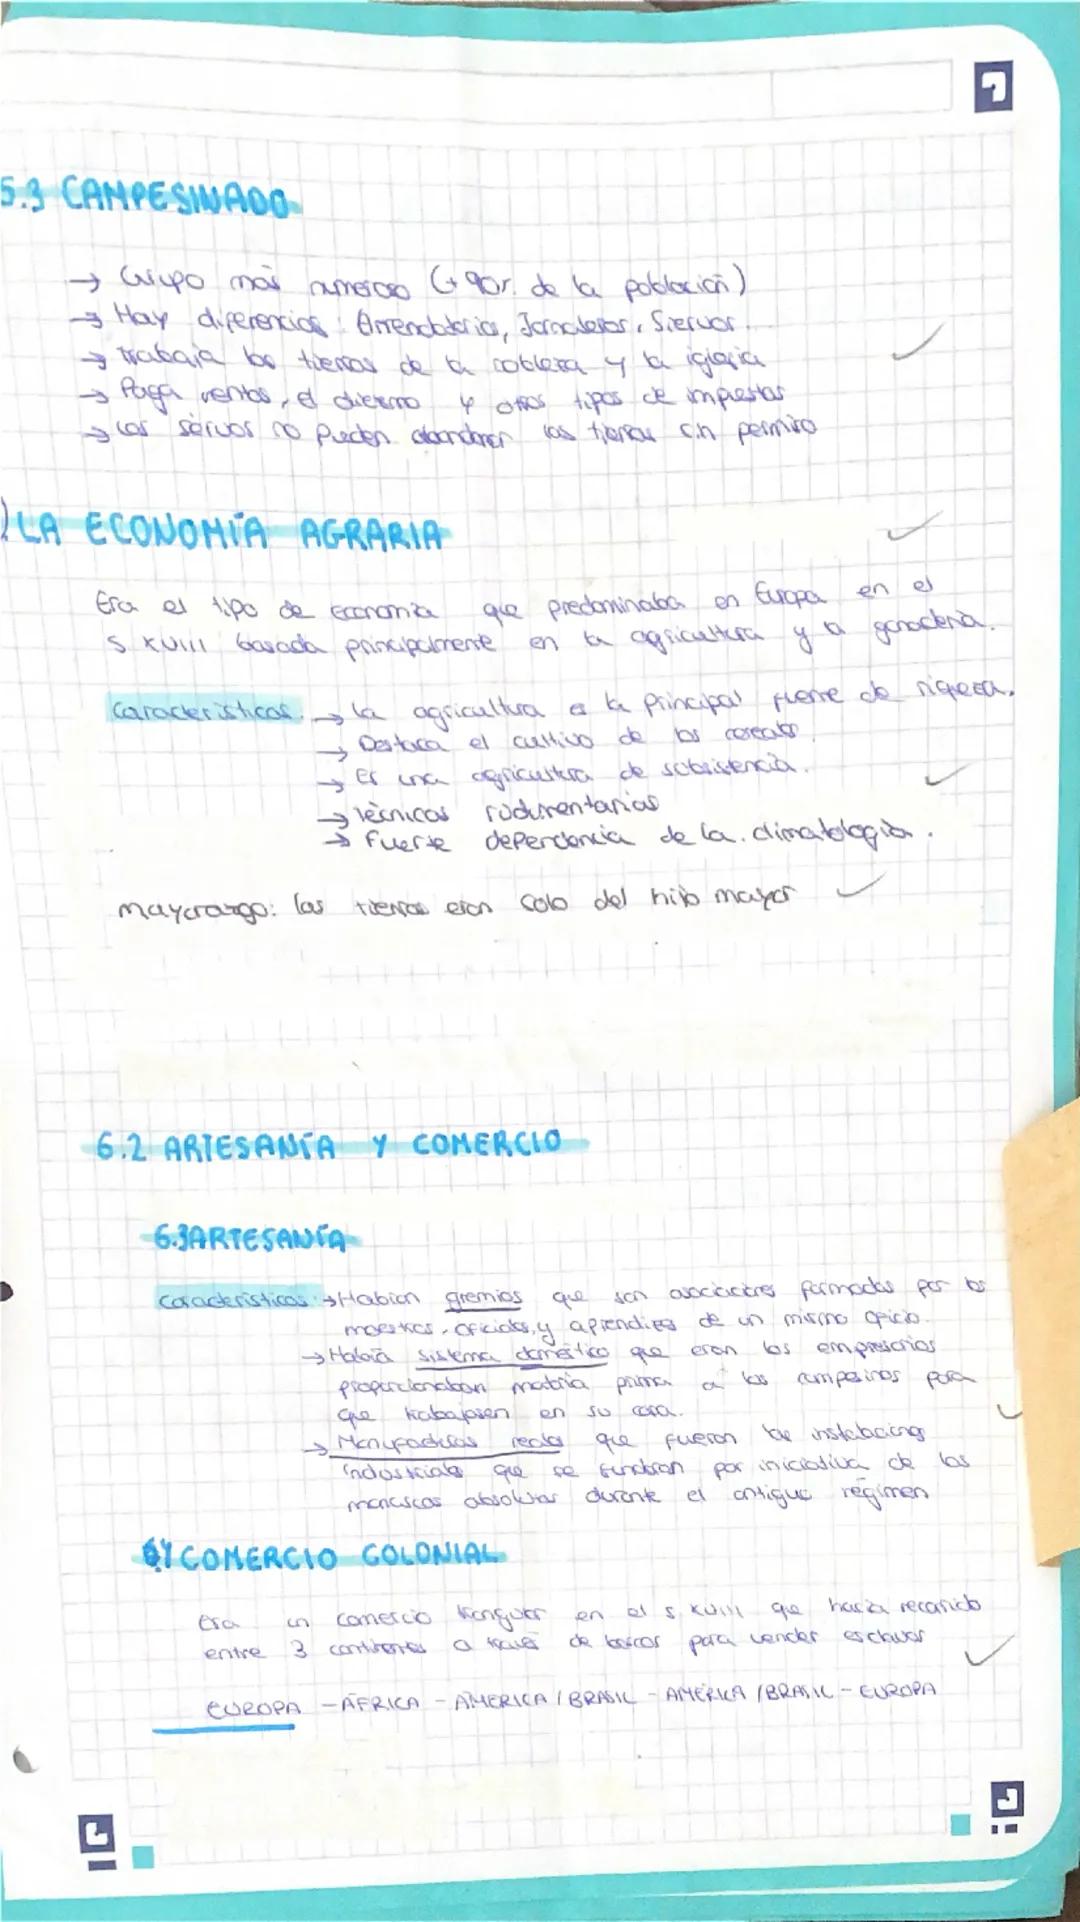 5.3 CAMPESINADO
→ Grupo más numeroso (+90%. de la población)
→ Hay diferencias: Arrendatarios, Jornaleros, Siervos.
→ trabaja las tierras de la nobleza y la iglesia
→ Paga rentas, el diezmo y otros tipos de impuestos
→ Los siervos no pueden abandonar las tierras sin permiso
) LA ECONOMÍA AGRARIA
Era el tipo de economía que predominaba en Europa en el
S XVIII basada principalmente en la agricultura y la ganadería.
Características. → La agricultura es la principal fuente de riqueza.
→ Destaca el cultivo de los cereales.
→ Es una agricultura de subsistencia.
→ Técnicas rudimentarias
→ Fuerte dependencia de la climatología.
mayorazgo: las tierras eran solo del hijo mayor
6.2 ARTESANÍA Y COMERCIO
6.3 ARTESANÍA
Características: → Habían gremios que son asociaciones formadas por los
maestros, oficiales, y aprendices de un mismo oficio.
→ Había sistema doméstico que eran los empresarios
proporcionaban matria prima a los campesinos para
que trabajasen en su casa.
→ Manufacturas reales que fueron las instalaciones
industriales que se fundaron por iniciativa de los
monarcas absolutas durante el antiguo régimen
COMERCIO COLONIAL
Era un comercio triangular en el s. XVIII que hacía recorrido
entre 3 continentes a través de barcos para vender esclavos
EUROPA - ÁFRICA - AMÉRICA / BRASIL - AMÉRICA / BRASIL - EUROPA